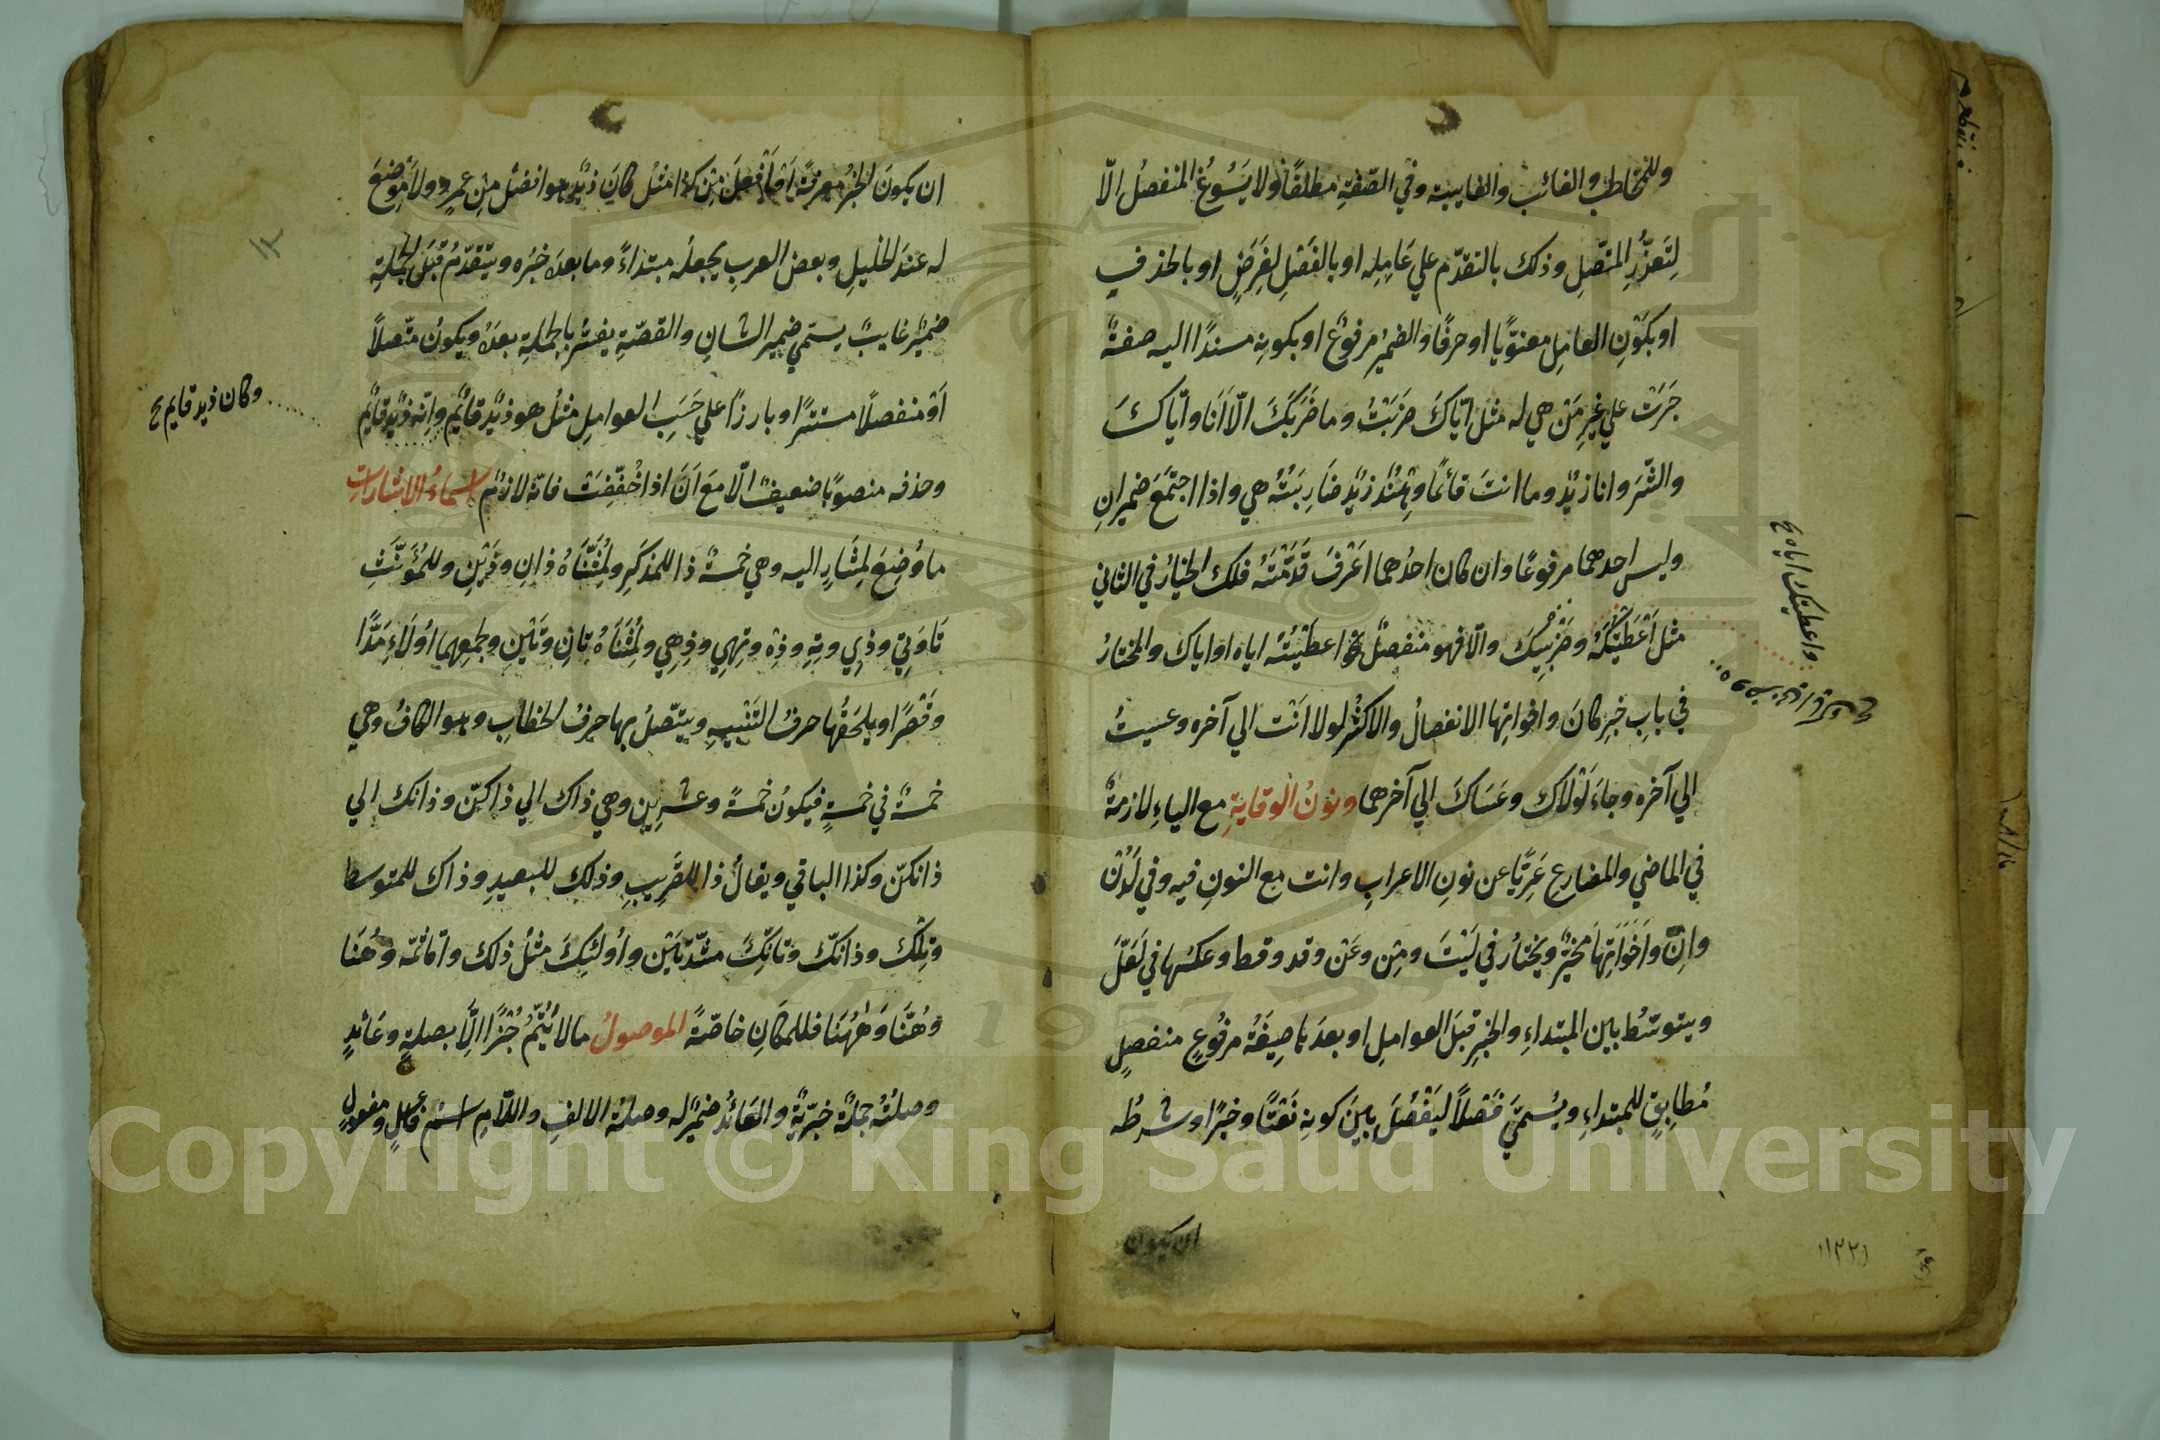 وللمخاطب والغائب والغايبة وفي الصّفةِ مطلقًا ولا يَسُوغُ المنفصلُ الّا
لِتَعذّرِ المتّصِلِ وذلك بالتقدّم علي عَامِلِه او بالفَصْلِ لِغَرَضٍ او بالحذفِ
او بكَوْنِ العامِلِ معنوّيًا او حرفًا والضميُر مرفوعٌ او بكونِه مسندًا اليه صفةٌ
جَرَتْ علي غيرِ مَنْ هي له مثلُ ايّاكَ ضرَبْتُ وما ضَرَبَكَ الّا اَنَا وايّاكَ
والشّرَ وانا زيدٌ وما انتَ قائمًا وهِنْدٌ زيدٌ ضارِبَتُهُ هي واذا اجتمَعَ ضميرانِ
وليس احدهما مرفوعًا وان كان احدُهما اعَرْفَ قَدَّمْتَهُ فلك الخيارُ في الثاني
مثل اَعْطَيْتُكَهُ وضَرْبِيكَ والّا فهو منفصلٌ نحوُ اعطَيْتُه اياه او اياك والمختارُ
في بابِ خبرِ كانَ واخواتِها الانفصالُ والاكثرُ لولا اَنْت الي آخره وعسيتُ
الي آخره وجاءَ لَوْلَاكَ وعَسَاكَ الي آخرهما ونونُ الوقايةِ مع الياءِ لازمةٌ
في الماضي والمضارعِ عَرِيًّا عن نونِ الاعرابِ وانت مع النونِ فيه وفي لَدُنْ
وانّ واَخَوَاتِها مُخَيَّرٌ ويُختارُ في لَيْتَ ومِن وعَنْ وقد وقط وعكسُها في لَعَلَّ
ويتوسّطُ بين المبتداءِ والخبرِ قبلَ العواملِ او بعدَها صِيغَةُ مرفُوعٍ منفصلٍ
مُطابِقٍ للمبتداءِ ويُسمّيَ فَصْلًا ليَفْصَلَ بينَ كونِه نَعْتًا وخبرًا وشرطُه
ان يكون
واعطيتك اياه
ان يكونَ الخبرُ معرفةً اَوْ اَفْعَلَ مِنْ كذا مثلُ كانَ زيدٌ هو افضلَ مِن عمرٍو ولا مَوْضِعَ
له عندَ الخليلِ وبعض العربِ يجعلُه مبتداءً وما بعدَه خبَرُه ويتقدّمُ قَبْلَ الجملةِ
ضميرٌ غايبٌ يسمّي ضميرَ الشانِ والقصّةِ يفسَّر بالجملةِ بعدَهُ ويكونُ متّصلاً
اَوْ منفصلًا مستترًا وبارزًا علي حَسَبِ العواملِ مثلُ هو زيدٌ قائمٌ وانّه زيدٌ قايمٌ
وكان زيد قايم
وحذفه منصوبًا ضعيفٌ الّا مَعَ اَنَّ اذا خُفِّفَتْ فانّه لازمٌ اسماءُ الاشاراتِ
ما وُضِعَ لمشارٍ اليه وهي خمسةٌ ذا للمذكّرِ ولمُثنّاهُ ذانِ وذَيْنِ وللمُؤنّثِ
تَا وتِي وذِي وتِهِ وذِهْ وتِهِي وذِهِي ولمُثَنَّاهُ تانِ وتَيْنِ وجمعِهما اُولَاءِ مَدًّا
وقَصْرًا ويلحَقُها حرفُ التَنْبيهِ ويتّصلُ بها حرفُ الخطابِ وهو الكافُ وهي
خمسةٌ في خمسةٍ فيكونُ خمسةً وعشرين وهي ذاك الي ذاكنّ وذانك الي
ذانكنّ وكذا الباقي ويقالُ ذا للقَريبِ وذلك للبعيدِ وذاك للمتوسط
وتِلْكَ وذانّك وتانّكَ مشدّدتَيْنِ واُولئكَ مثلُ ذلك وامّا ثَمّه وهُنَا
وهُنَّا وهٰهُنَا فللمكانِ خاصّةً الموصولُ ما لا يُتِمُّ جُزْءًا الّا بصلةٍ وعَائدٍ
وصلتُهُ جملةٌ خبَرّيةٌ والعَائدُ ضميرٌ له وصلةُ الالفِ واللّامِ اسمُ فاعلٍ ومفعولٍ